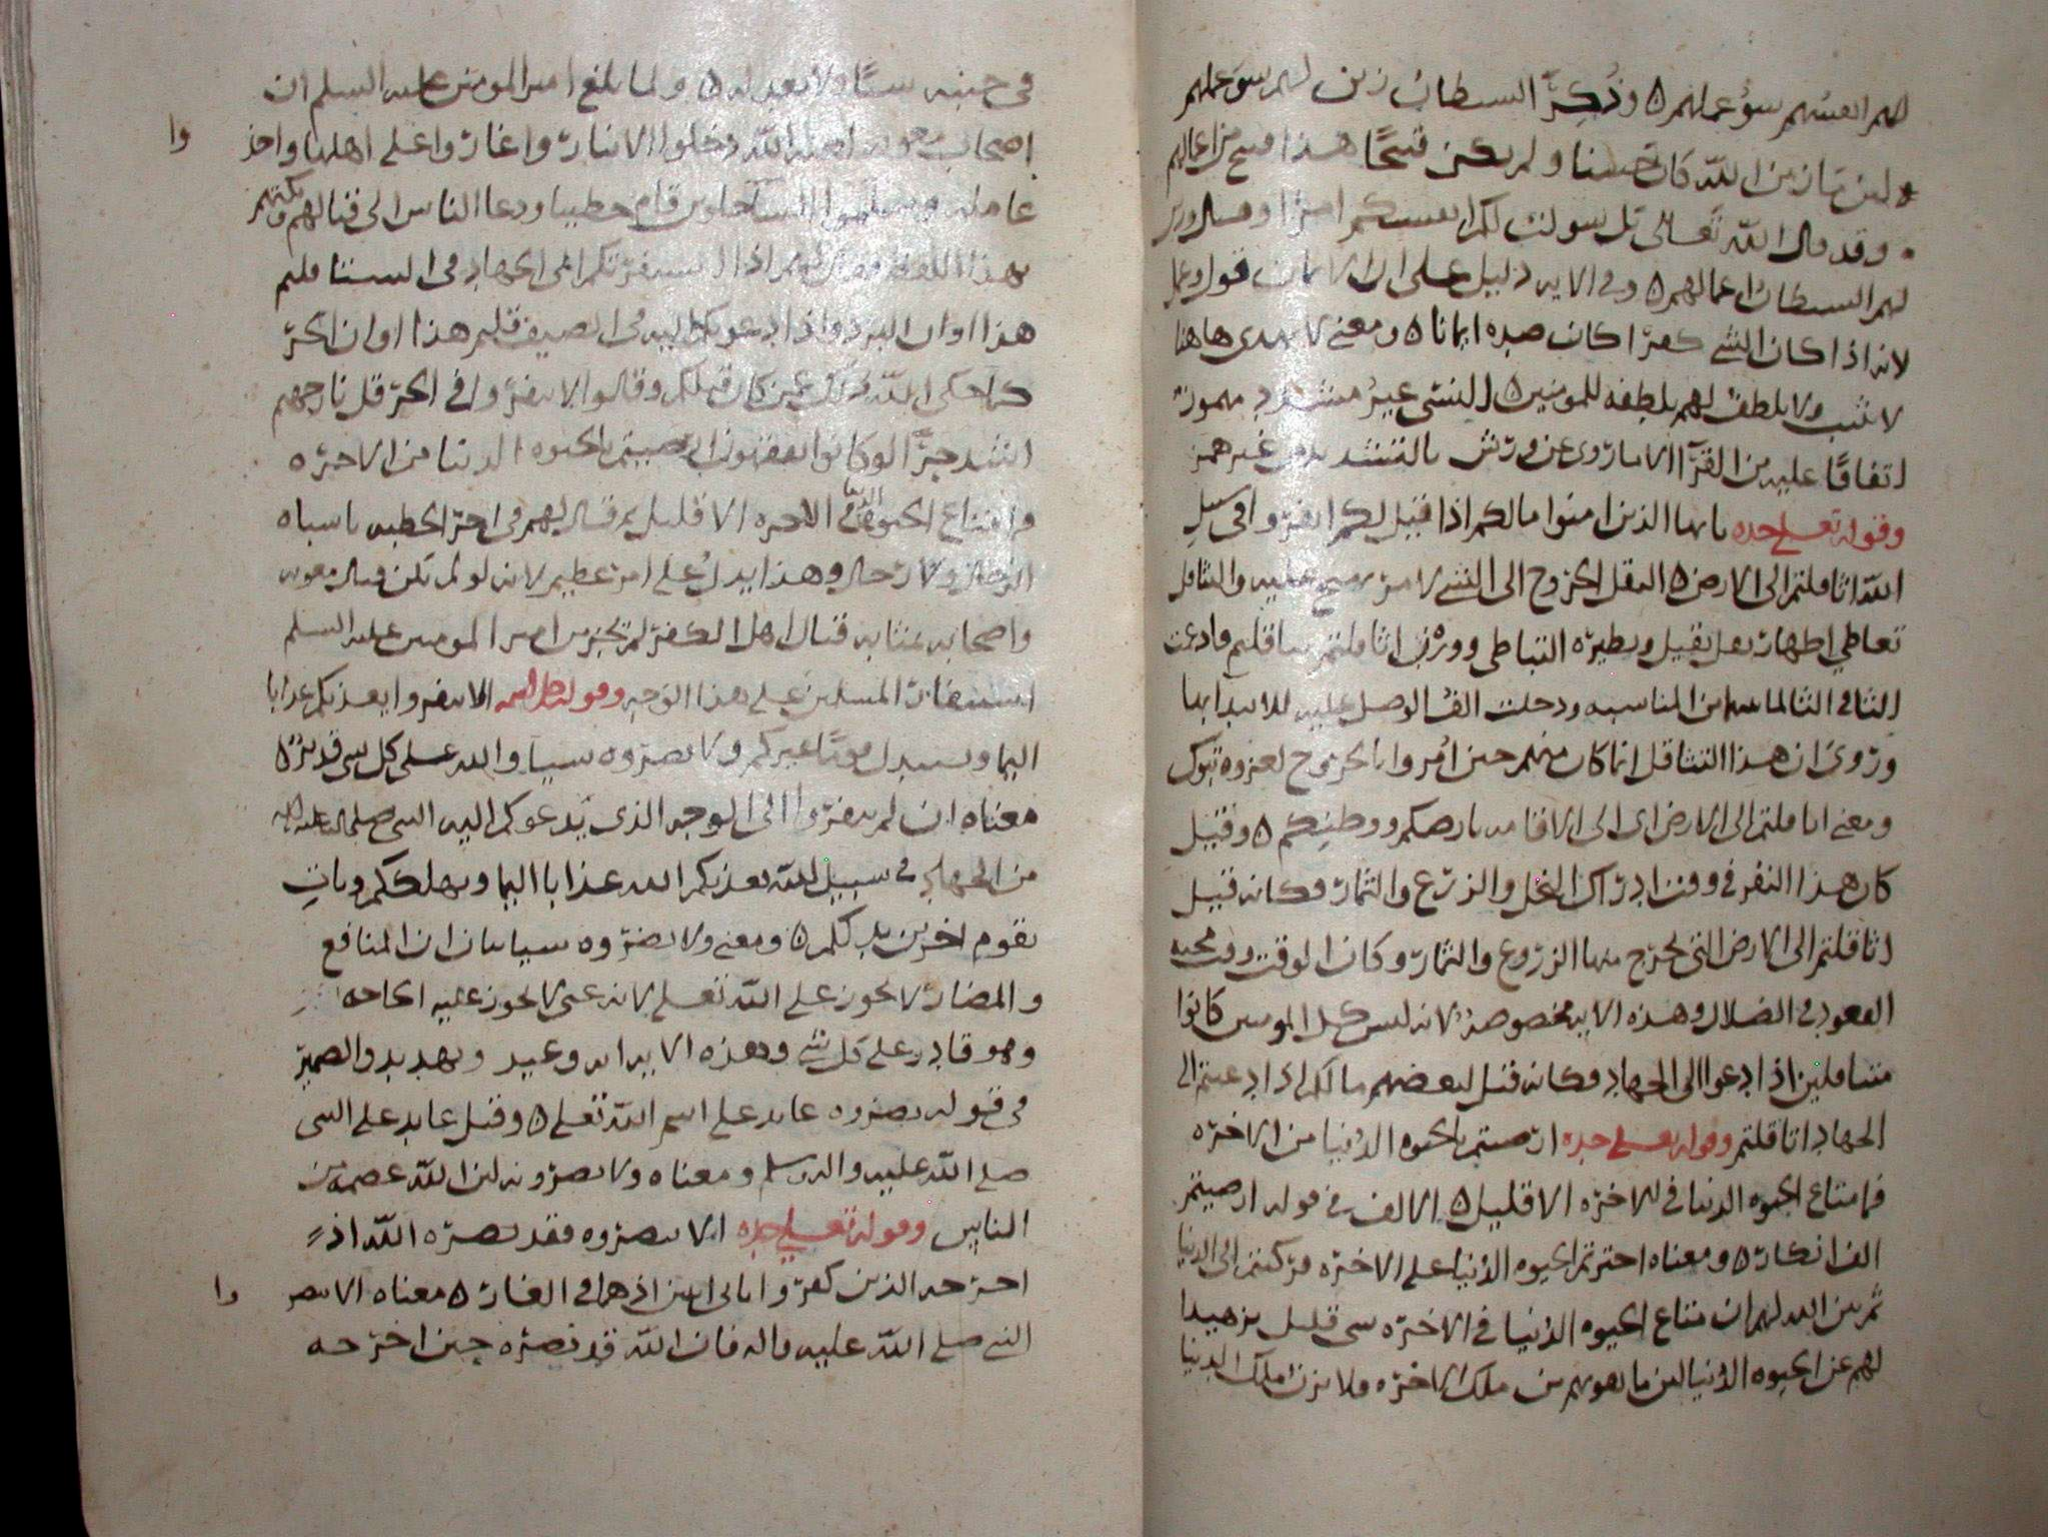 لهم انفسهم سوء عملهم ٥ وذكر ان الشيطان زين لهم سوء عملهم
لان ما زين من الله كان حسنا ولم يكن قبيحًا هذا قبيح من اعمالهم
وقد قال الله تعالى بل سولت لكم انفسكم امرًا وقال وزين
لهم الشيطان اعمالهم ٥ وفي الايه دليل على ان الايمان قول وعمل
لانه اذا كان الشي كفرًا كان ضده ايمانا ٥ ومعنى لا يهدي هاهنا
لا يثيب ولا يلطف لهم بلطفه للمومنين ٥ النسي غير مشدد مهموز
اتفاقًا عليه من القرّا الا ما رُوى عن ورش بالتشديد من غير همز
وقوله تعالى جده يا ايها الذين امنوا مالكم اذا قيل لكم انفروا في سبيل
الله اثاقلتم الى الارض ٥ النفر الخروج الى الشي لامر يهيج عليه والتثاقل
تعاطي اظهار ثقل يقيل ونظيره التباطي ووزن اثاقلتم تثاقلتم فادغمت
التا في الثا لما بينهما من المناسبه ودخلت الف الوصل عليه للابتدا بها
ورُوى ان هذا التثاقل انما كان منهم حين اُمروا بالخروج لغزوه تبوك
ومعنى اثاقلتم الى الارض اى الى الاقامه بارضكم ووطنكم ٥ وقيل
كان هذا النفر في وقت ادراك النخل والزرع والثمار فكانه قيل
اثاقلتم الى الارض التي تخرج منها الزروع والثمار وكان الوقت وقت محبه
القعود في الضلال وهذه الايه مخصوصه لانه ليس كل المومنين كانوا
متثاقلين اذا دعوا الى الجهاد فكانه قيل لبعضهم مالكم اذا دعيتم الى
الجهاد اثاقلتم وقوله تعالى جده ارضيتم بالحيوه الدُنيا من الاخره
فما متاع الحيوه الدنيا في الاخره الا قليل ٥ الالف في قوله ارضيتم
الف انكار ٥ ومعناه اخترتم الحيوه الدُنيا على الاخره وركنتم الى الدنيا
ثم بين الله لهم ان متاع الحيوه الدُنيا في الاخره شي قليل تزهيدا
لهم عن الحيوه الدُنيا لئن ما يفوتهم من ملك الاخره ولا يزن املك الدنيا
في جنبه شيًا ولا يعد له ٥ ولما بلغ امير المومنين عليه السلم ان
اصحاب معويه لعنه الله دخلوا الانبار واغاروا على اهلها واخذ
وا
عامله قام خطيبا ودعا الناس الى قتالهم
بهذا اللفظ فقال لهم اذا استنفرتكم الى الجهاد في الشتا قلتم
هذا اوان البرد واذا ادعوكم اليه في الصيف قلتم هذا اوان الحرّ
كما حكى الله عمن كان قبلكم وقالوا لا تنفروا في الحر قل نار جهنم
اشد حرًّا لو كانوا يفقهون ارضيتم بالحيوه الدنيا من الاخره
فما متاع الحيوه الدنيا في الاخره الا قليل ثم قال لهم في اخر الخطبه يا اشباه
الرجال ولا رجال وهذا يدلُ على امر عظيم لانه لو لم تكن قتال معويه
واصحابه بمثابه قتال اهل الكفر لم تجز من امير المومنين عليه السلم
استنفار المسلمين على هذا الوجه وقوله جل اسمه الا تنفروا يعذبكم عذابا
اليما ويستبدل قومًا غيركم ولا تضروه شيا والله على كل شي قدير ٥
معناه ان لم تنفروا الى الوجه الذي يدعوكم اليه النبي صلى الله عليه واله
من الجهاد في سبيل الله يعذبكم الله عذابا اليما ويهلككم وياتِ
بقوم اخرين بدلكم ٥ ومعنى ولا تضروه شيا بيان ان المنافع
والمضار لا تجوز على الله تعالى لانه غني لا تجوز عليه الحاجه
وهو قادر على كل شي وهذه الايه وعيد وتهديد والضمير
في قوله تضروه عايد على اسم الله تعالى ٥ وقيل عايد على النبي
صلى الله عليه واله وسلم ومعناه ولا تضرونه لئن الله عصمه من
الناس وقوله تعالى جده الا تنصروه فقد نصره الله اذ
اخرجه الذين كفروا ثاني اثنين اذ هما في الغار ٥ معناه الا تنصر
وا
النبي صلى الله عليه واله فان الله قد نصره حين اخرجه